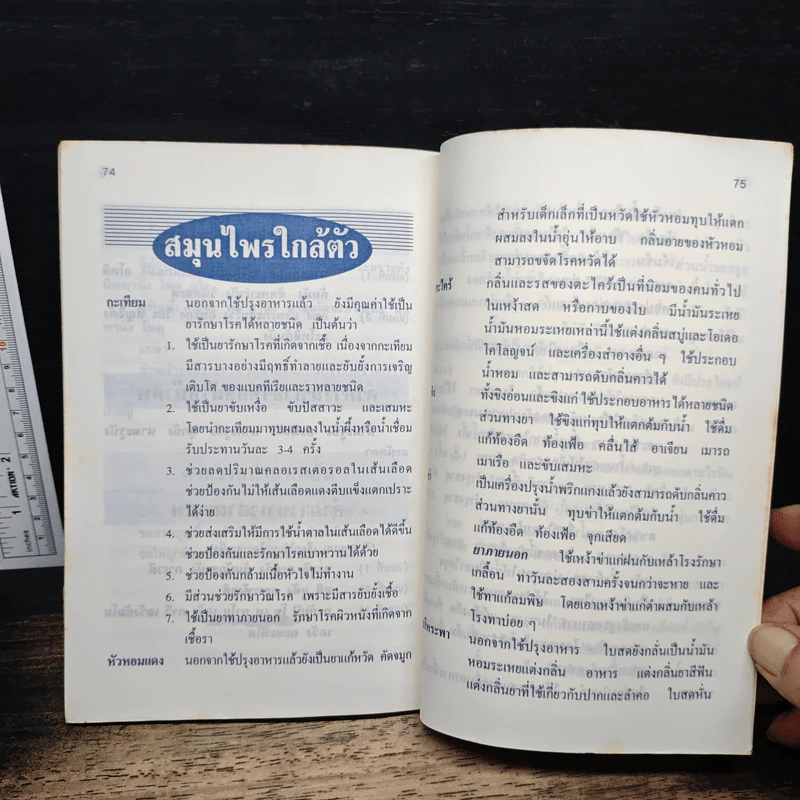 74
สมุนไพรใกล้ตัว
กะเทียม นอกจากใช้ปรุงอาหารแล้ว ยังมีคุณค่าใช้เป็น
ยารักษาโรคได้หลายชนิด เป็นต้นว่า
1. ใช้เป็นยารักษาโรคที่เกิดจากเชื้อ เนื่องจากกะเทียม
มีสารบางอย่างมีฤทธิ์ทำลายและยับยั้งการเจริญ
เติบโต ของแบคทีเรียและราหลายชนิด
2. ใช้เป็นยาขับเหงื่อ ขับปัสสาวะ และเสมหะ
โดยนำกะเทียมมาทุบผสมลงในน้ำผึ้งหรือน้ำเชื่อม
รับประทานวันละ 3-4 ครั้ง
3. ช่วยลดปริมาณคลอเรสเตอรอลในเส้นเลือด
ช่วยป้องกันไม่ให้เส้นเลือดแดงตีบแข็งแตกเปราะ
ได้ง่าย
4. ช่วยส่งเสริมให้มีการใช้น้ำตาลในเส้นเลือดได้ดีขึ้น
ช่วยป้องกันและรักษาโรคเบาหวานได้ด้วย
5. ช่วยป้องกันกล้ามเนื้อหัวใจไม่ทำงาน
6. มีส่วนช่วยรักษาวัณโรค เพราะมีสารยับยั้งเชื้อ
7. ใช้เป็นยาทาภายนอก รักษาโรคผิวหนังที่เกิดจาก
เชื้อรา
หัวหอมแดง นอกจากใช้ปรุงอาหารแล้วยังเป็นยาแก้หวัด คัดจมูก
75
สำหรับเด็กเล็กที่เป็นหวัดใช้หัวหอมทุบให้แตก
ผสมลงในน้ำอุ่นให้อาบ กลิ่นอายของหัวหอม
สามารถขจัดโรคหวัดได้
ะไคร้ กลิ่นและรสของตะไคร้เป็นที่นิยมของคนทั่วไป
ในเหง้าสด หรือกาบของใบ มีน้ำมันระเหย
น้ำมันหอมระเหยเหล่านี้ใช้แต่งกลิ่นสบู่และโอเดอ
โคโลญจน์ และเครื่องสำอางอื่น ๆ ใช้ประกอบ
น้ำหอม และสามารถดับกลิ่นคาวได้
ทั้งขิงอ่อนและขิงแก่ ใช้ประกอบอาหารได้หลายชนิด
ส่วนทางยา ใช้ขิงแก่ทุบให้แตกต้มกับน้ำ ใช้ดื่ม
แก้ท้องอืด ท้องเฟ้อ คลื่นไส้ อาเจียน เมารถ
เมาเรือ และขับเสมหะ
เป็นเครื่องปรุงน้ำพริกแกงแล้วยังสามารถดับกลิ่นคาว
ส่วนทางยานั้น ทุบข่าให้แตกต้มกับน้ำ ใช้ดื่ม
แก้ท้องอืด ท้องเฟ้อ จุกเสียด
ยาภายนอก ใช้เหง้าข่าแก่ฝนกับเหล้าโรงรักษา
เกลื้อน ทาวันละสองสามครั้งจนกว่าจะหาย และ
ใช้ทาแก้ลมพิษ โดยเอาเหง้าข่าแก่ตำผสมกับเหล้า
โรงทาบ่อย ๆ
ะพา นอกจากใช้ปรุงอาหาร ใบสดยังกลั่นเป็นน้ำมัน
หอมระเหยแต่งกลิ่น อาหาร แต่งกลิ่นยาสีฟัน
แต่งกลิ่นยาที่ใช้เกี่ยวกับปากและลำคอ ใบสดหั่น